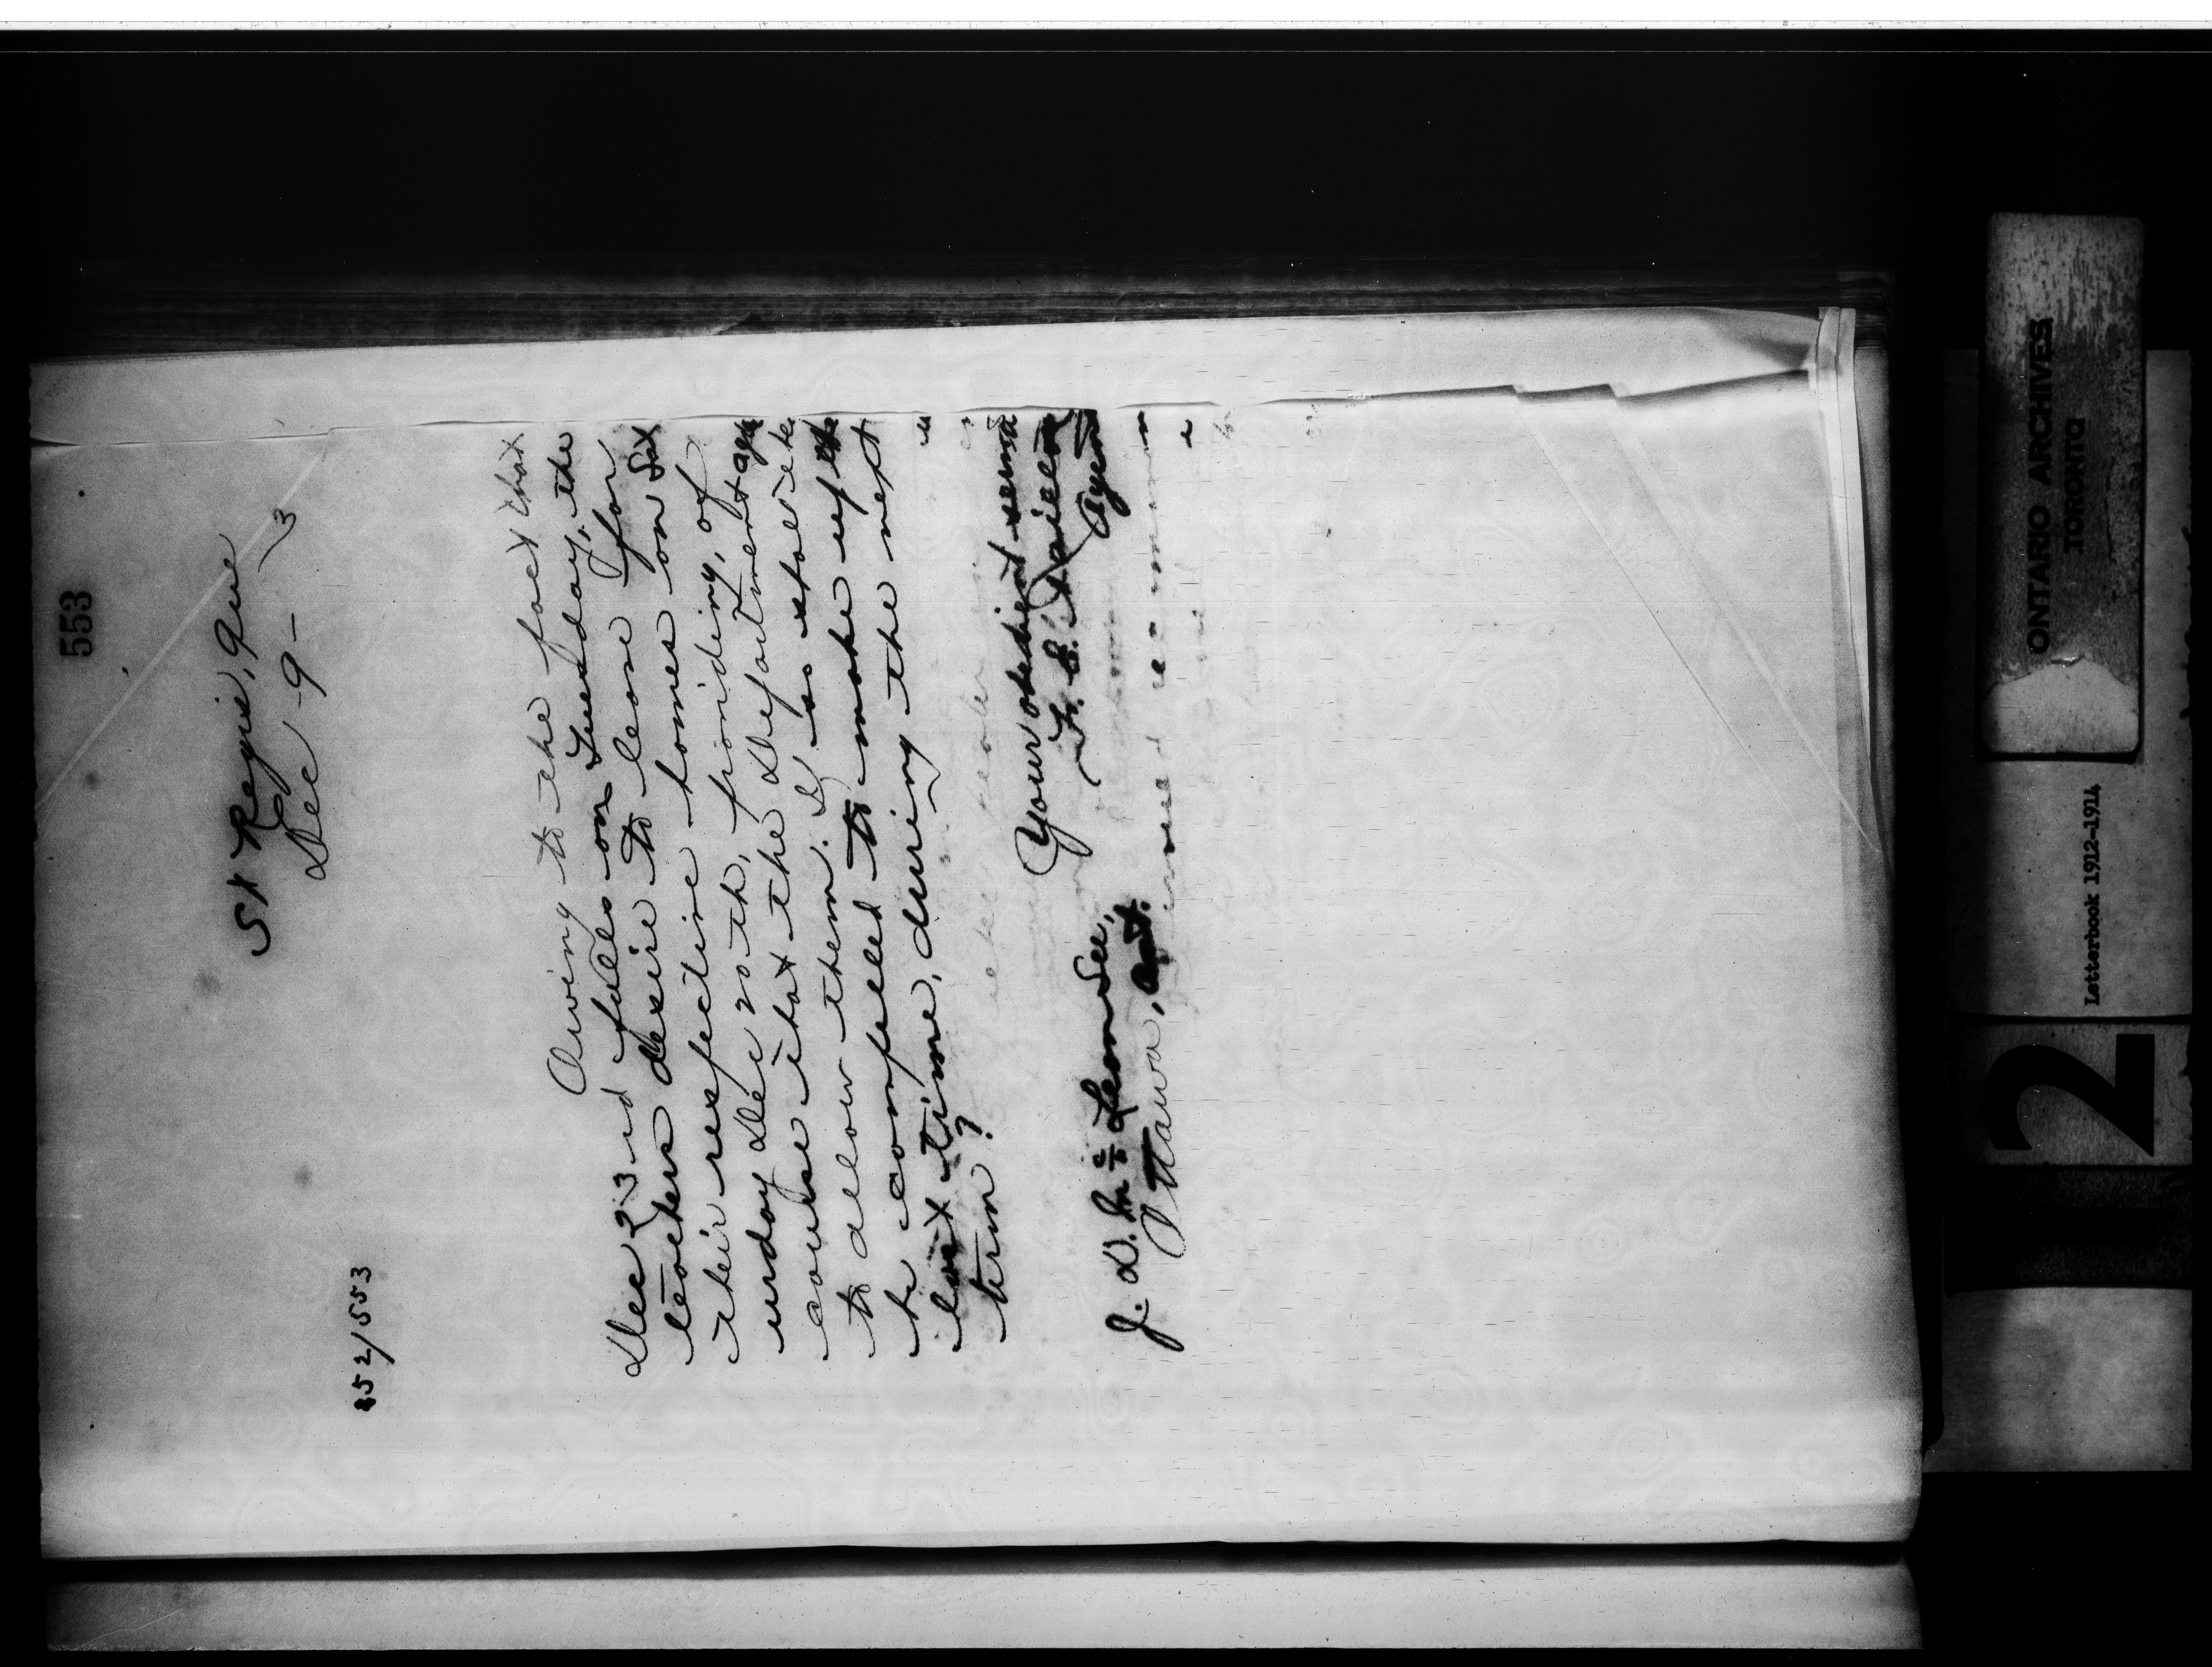 553
St Regis, Que
Dec 9- 3
852/553
Owing to the fact that
Dec 23rd falls on Tuesday, the
teachers desire to leave for
their respective homes on Sat
urday Dec 20th, providing, of
course that the Department agree
to allow them. If so shall they
be compelled to make up the
lost time, during the next
term?
Your obedient serva
F. E. Taillon
Agent
J. D. McLean Sec,
Ottawa, Ont.
ONTARIO ARCHIVES
TORONTO
Letterbook 1912-1914
2